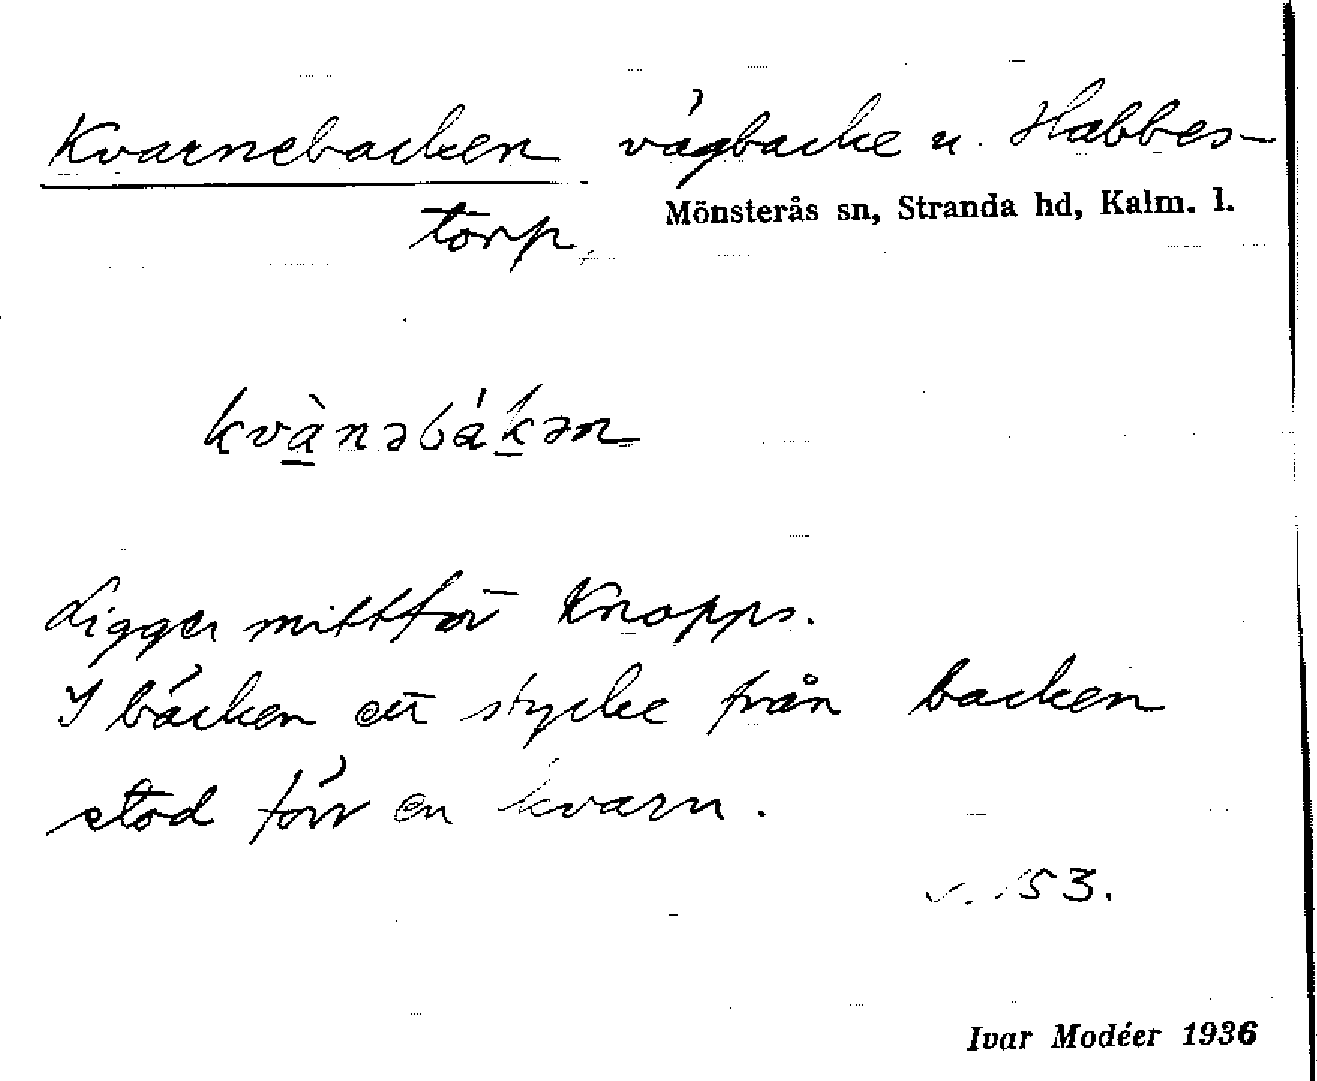 Kvarnebacken vägbacke u. Habbes-
torp.
Mönsterås sn, Stranda hd, Kalm. l.
kvànəbákən
Ligger mittför Knopps.
I bäcken ett stycke från backen
stod förr en kvarn.
v. 153.
Ivar Modéer 1936